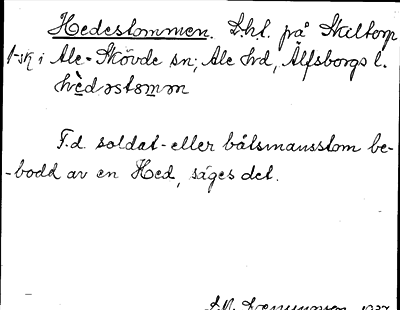 Hedestommen. Lht. på Skeltorp
1-sk i Ale-Skövde sn; Ale hd, Älfsborgs l.
hèdəstəmən
F.d. soldat- eller båtsmansstom be-
-bodd av en Hed, säges det.